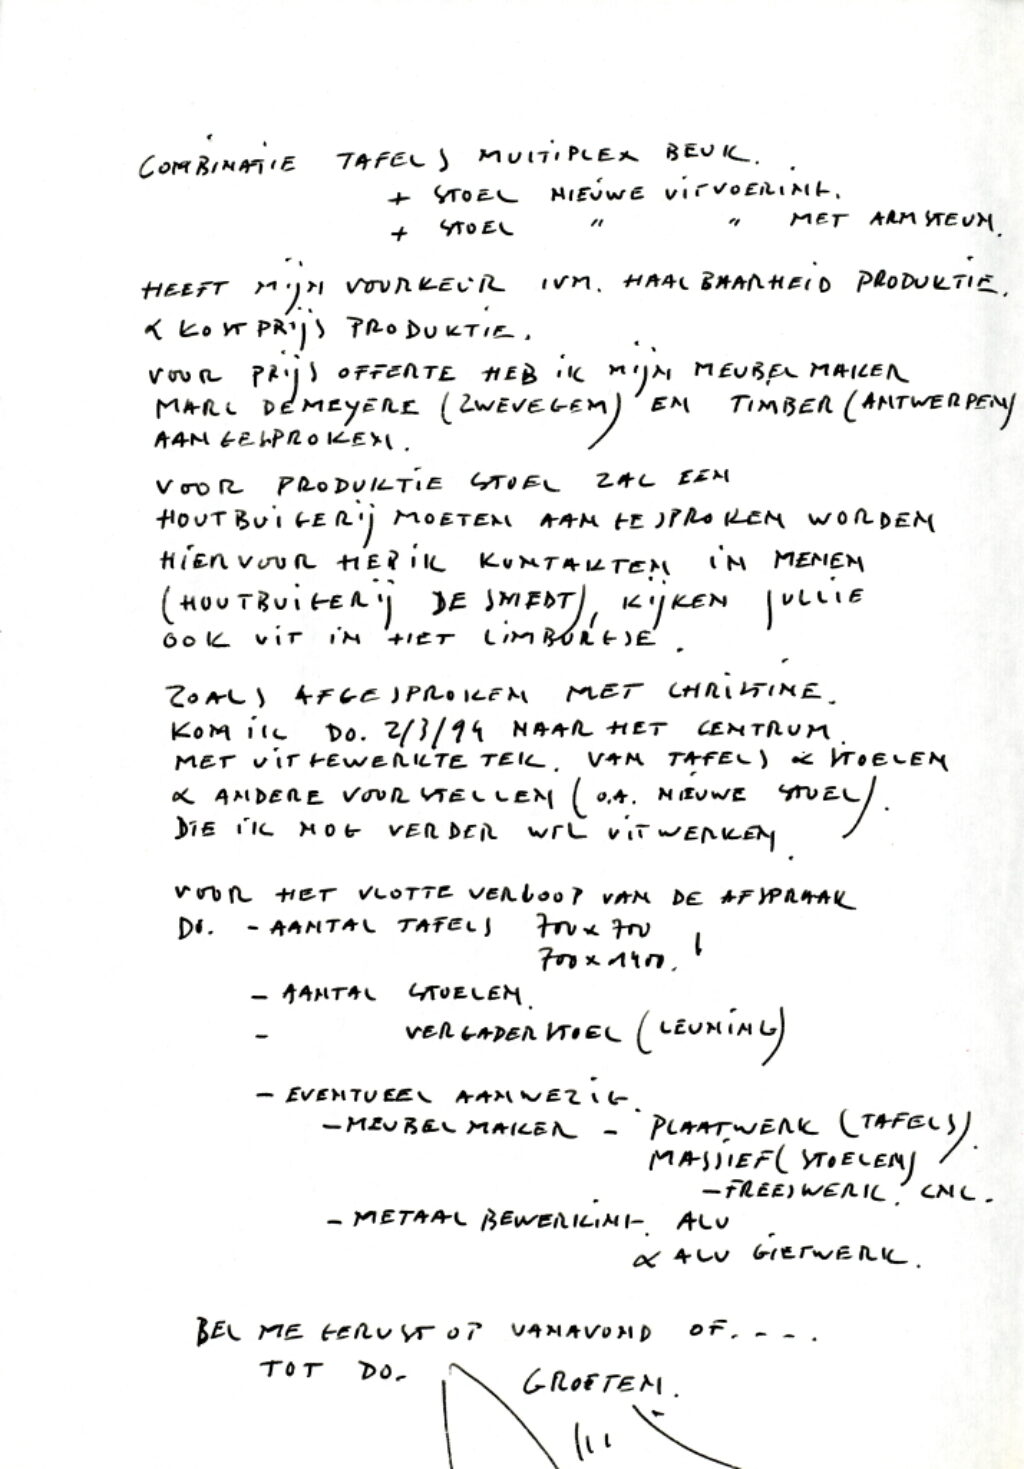 COMBINATIE TAFELS MULTIPLEX BEUK.
+ STOEL NIEUWE UITVOERING.
+ STOEL " " MET ARMSTEUN.
HEEFT MIJN VOORKEUR IVM. HAALBAARHEID PRODUKTIE.
& KOSTPRIJS PRODUKTIE.
VOOR PRIJSOFFERTE HEB IK MIJN MEUBELMAKER
MARC DEMEYERE (ZWEVEGEM) EN TIMBER (ANTWERPEN)
AANGESPROKEN.
VOOR PRODUKTIE STOEL ZAL EEN
HOUTBUIGERIJ MOETEN AANGESPROKEN WORDEN
HIERVOOR HEB IK KONTAKTEN IN MENEN
(HOUTBUIGERIJ DE SMEDT), KIJKEN JULLIE
OOK UIT IN HET LIMBURGSE.
ZOALS AFGESPROKEN MET CHRISTINE.
KOM IK DO. 2/3/94 NAAR HET CENTRUM.
MET UITGEWERKTE TEK. VAN TAFELS & STOELEN
& ANDERE VOORSTELLEN (O.A. NIEUWE STOEL).
DIE IK NOG VERDER WIL UITWERKEN.
VOOR HET VLOTTE VERLOOP VAN DE AFSPRAAK
DO. - AANTAL TAFELS 700 x 700
700 x 1400. !
- AANTAL STOELEN.
- VERGADERSTOEL (LEUNING)
- EVENTUEEL AANWEZIG.
- MEUBELMAKER - PLAATWERK (TAFELS).
MASSIEF (STOELEN)
- FREESWERK. CNC.
- METAALBEWERKING. ALU
& ALU GIETWERK.
BEL ME GERUST OP VANAVOND OF. - - .
TOT DO.
GROETEN.